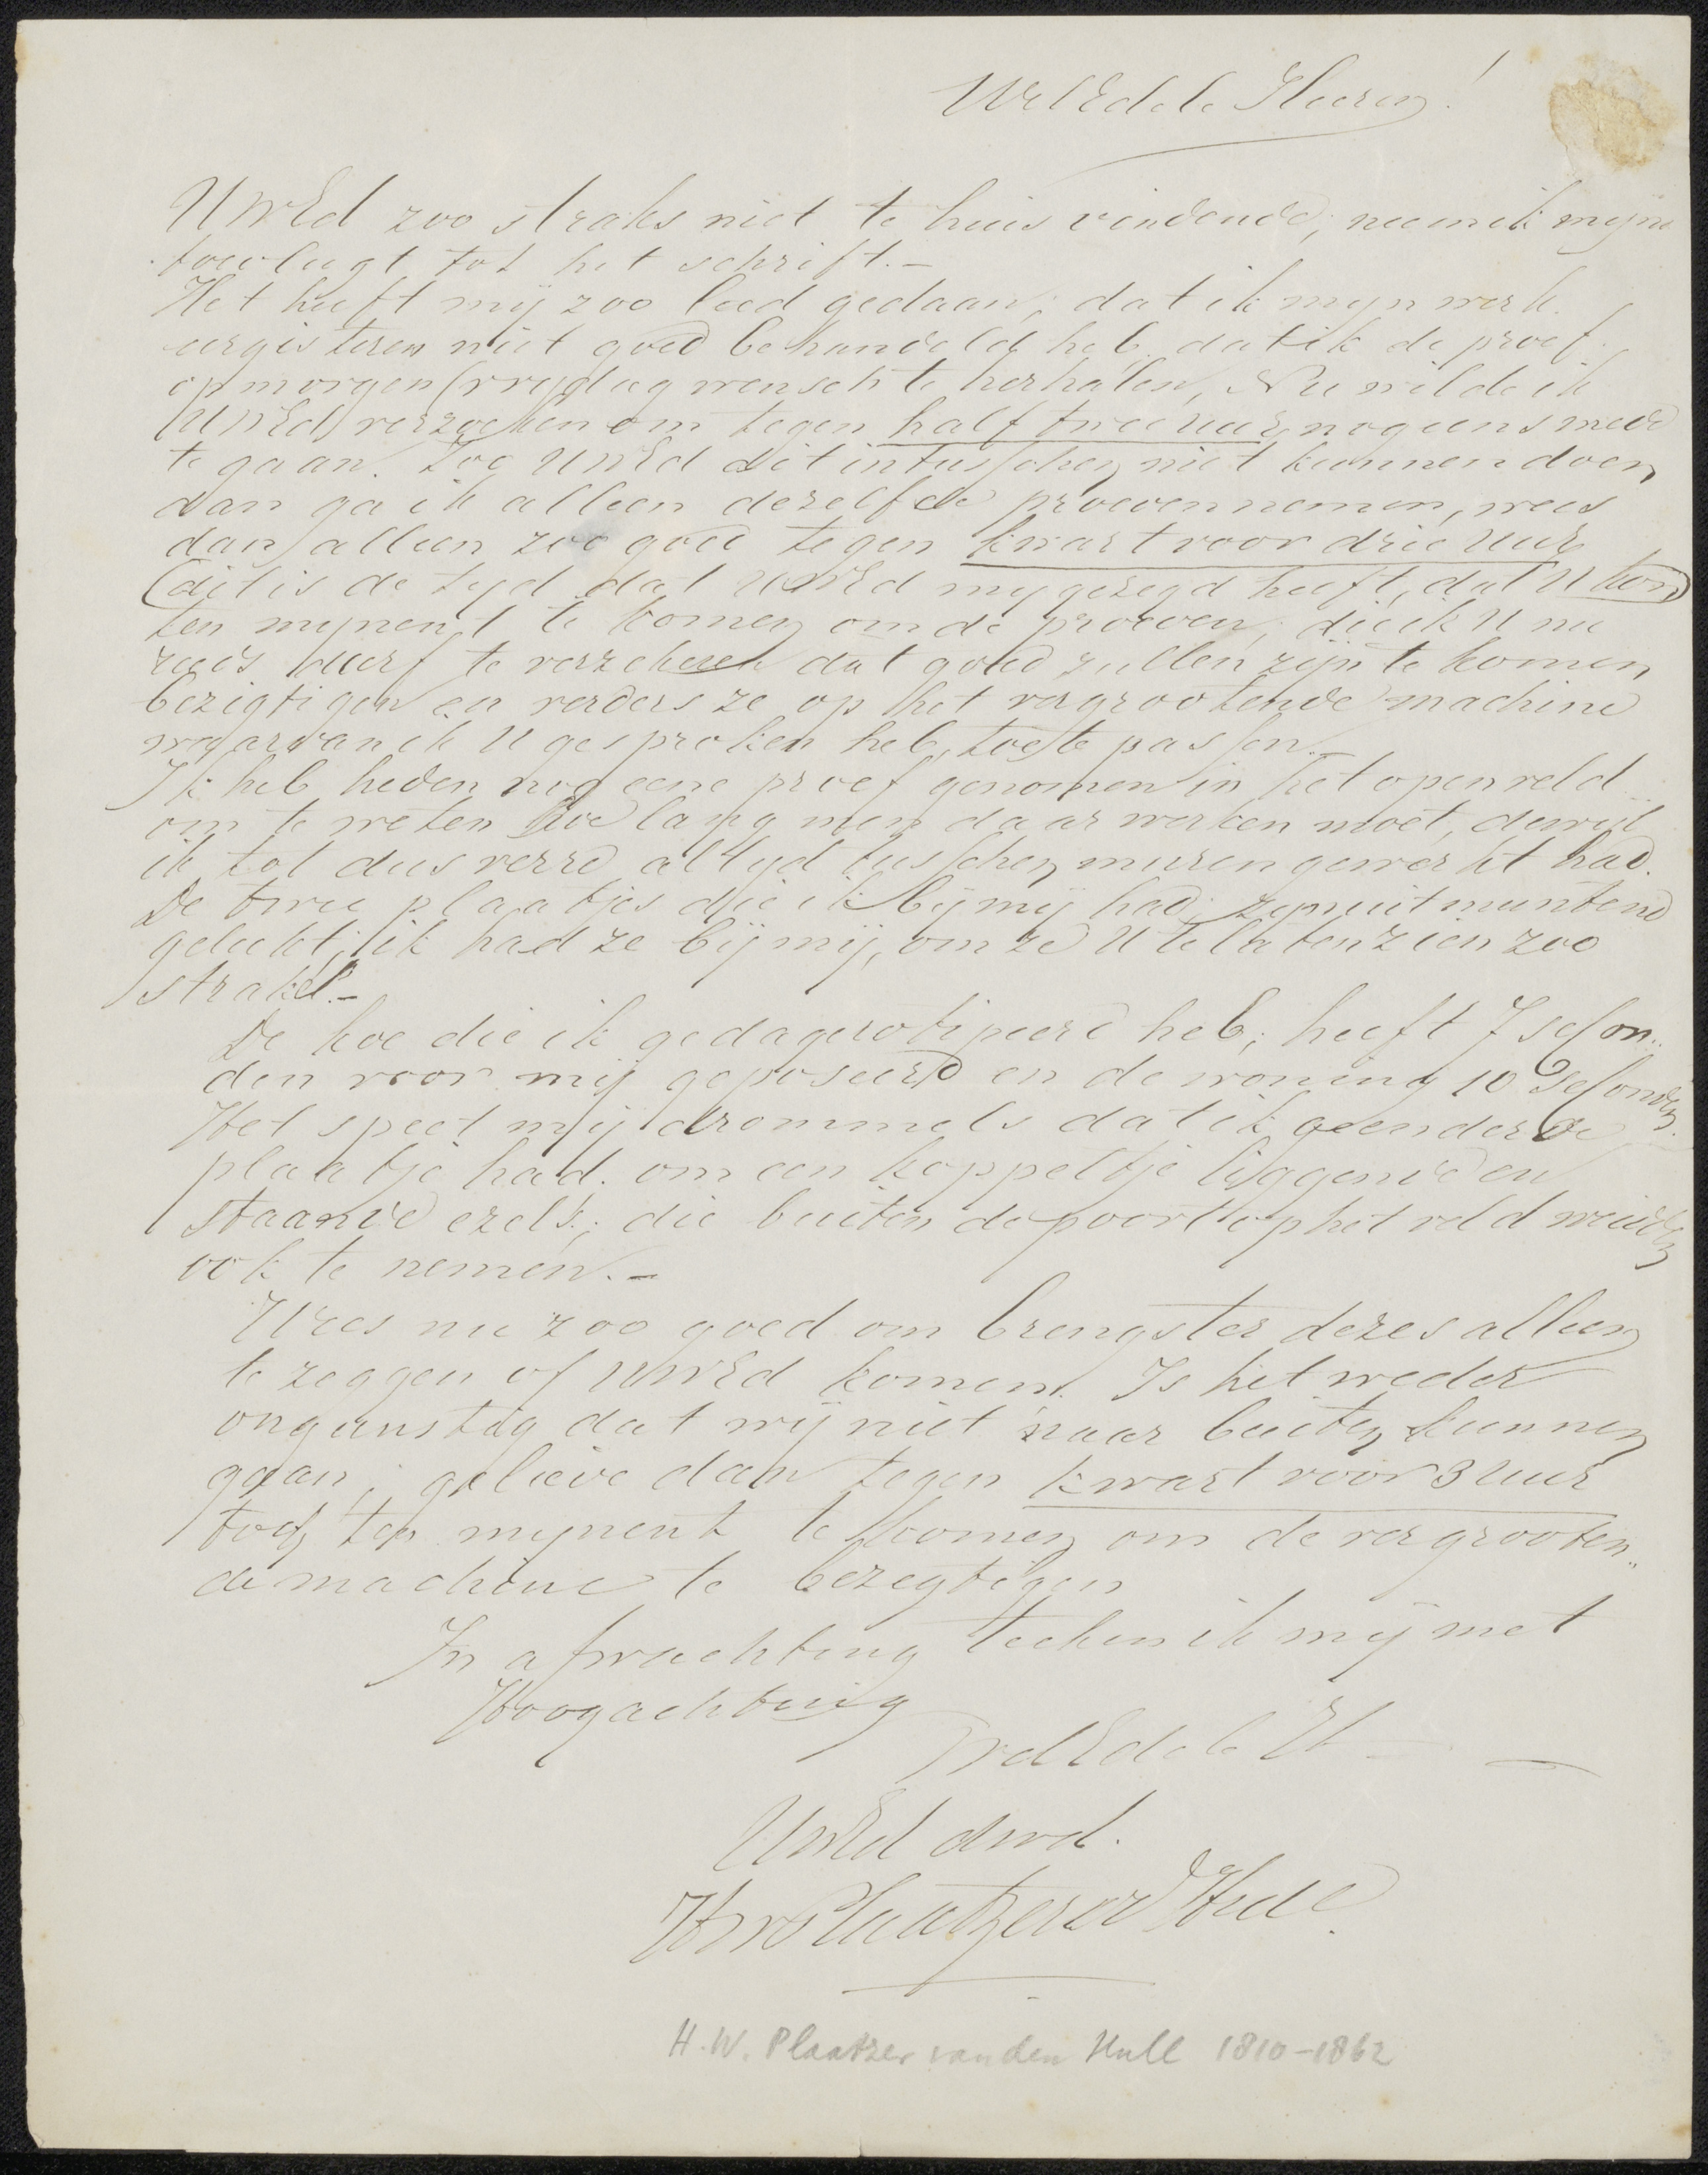 WelEdele Heeren!
UWEd zoo straks niet te huis vindende, neem ik mijne
toevlugt tot het schrift.-
Het heeft mij zoo leed gedaan, dat ik mijn werk
eergisteren niet goed behandeld heb, dat ik de proef
op morgen (vrijdag wensch te herhalen, Nu wilde ik
UWEd verzoeken om tegen half twee uur nog eens mede
te gaan. Zoo UWEd dit intusschen niet kunnen doen,
dan ga ik alleen dezelfde proeven nemen, wees
dan alleen zoo goed tegen kwart voor drie uur
(dit is de tyd dat UWEd my gezegd heeft, dat U kon)
ten mynent te komen om de proeven, die ik U nu
reeds durf te verzekeren dat goed zullen zijn te komen
bezigtigen en verders ze op het vergrootende machine
waarvan ik U gesproken heb, toe te passen.-
Ik heb heden nog eene proef genomen in het open veld
om te weten hoe lang men daar werken moet, dewijl
ik tot dus verre altyd tusschen muren gewerkt had.
De twee plaatjes die ik bij mij had, zyn uitmuntend
gelukt; ik had ze bij mij, om ze U te laten zien zoo
straks.-
De koe die ik gedagerotipeerd heb, heeft 7 secon-
den voor mij geposeerd en de woning 10 Seconden.
Het speet mij drommels dat ik geen derde
plaatje had. om een koppeltje liggende en
staande ezels, die buiten de poort op het veld weidden
ook te nemen.-
Wees nu zoo goed om brengster dezes alleen
te zeggen of UWEd komen. Is het weder
ongunstig dat wij niet naar buiten kunnen
gaan, gelieve dan tegen kwart voor 3 uur
toch ten mynent te komen om de vergrooten-
de machine te bezigtigen
In afwachting teeken ik mij met
Hoogachting
WelEdele H
UWEd dwd.
HW Plaatzer vd Hull
H.W. Plaatzer van den Hull 1810-1862